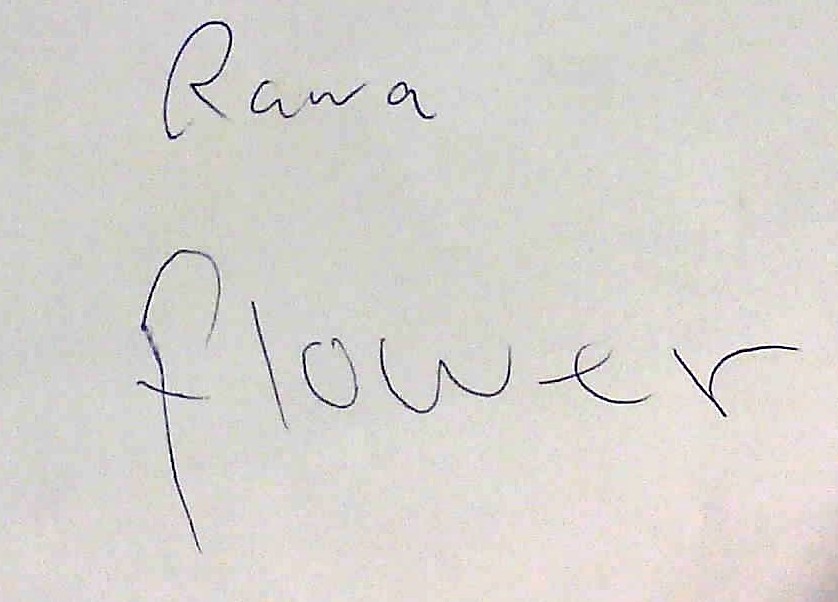 Rawa
flower